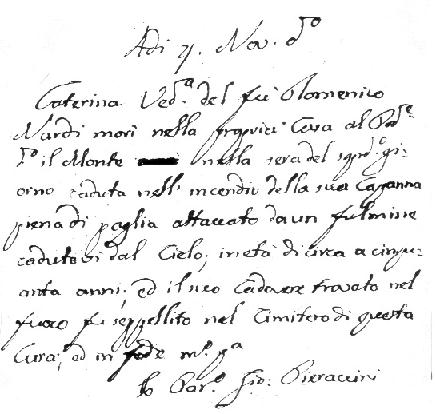 Adi 21. Nov. dº
Caterina Vedª. del fù Domenico
Nardi morì nella propria Casa al Podᵉ.
dº il Monte nella sera del sopradº. gi-
orno caduta nell' incendio della sua Capanna
piena di paglia attaccato da un fulmine
cadutovi dal Cielo, in età di circa a cinqu-
anta anni; ed il suo Cadavere trovato nel
fuoco fù seppellito nel Cimitero di questa
Cura; ed in fede mº. pª
Io Parº. Gio: Pieraccini